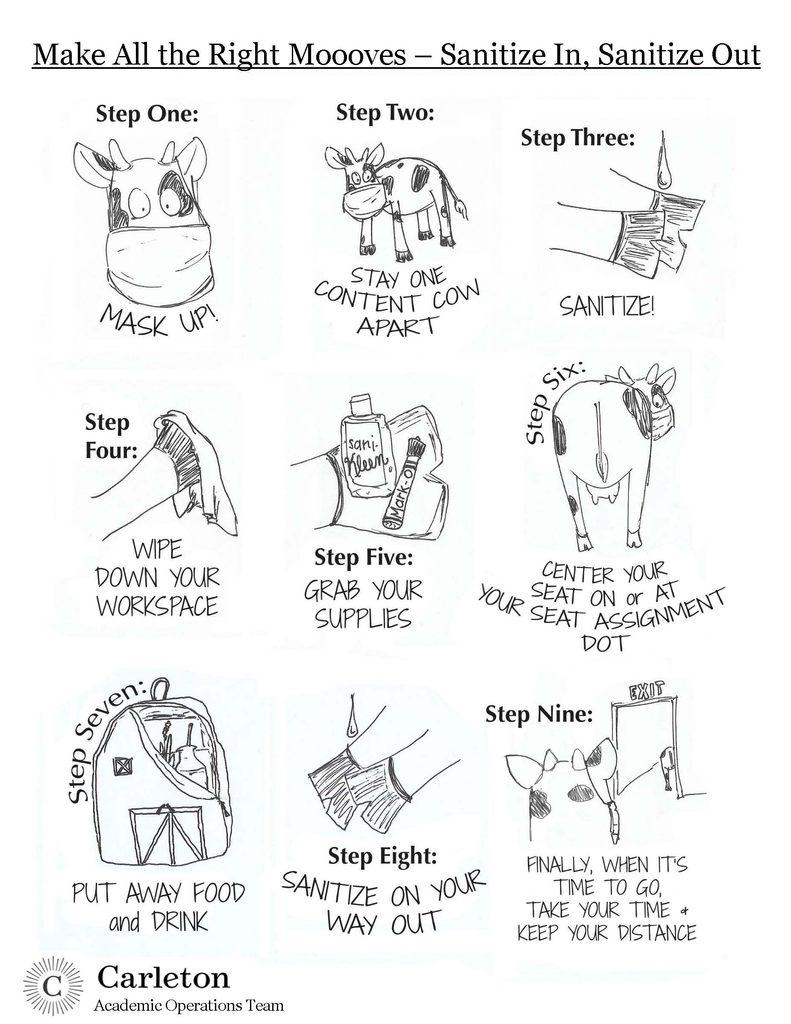 Make All the Right Moooves – Sanitize In, Sanitize Out
Step One:
MASK UP!
Step Two:
STAY ONE
CONTENT COW
APART
Step Three:
SANITIZE!
Step
Four:
WIPE
DOWN YOUR
WORKSPACE
sani-
Kleen
Mark-O
Step Five:
GRAB YOUR
SUPPLIES
Step Six:
CENTER YOUR
SEAT ON or AT
YOUR SEAT ASSIGNMENT
DOT
Step Seven:
PUT AWAY FOOD
and DRINK
Step Eight:
SANITIZE ON YOUR
WAY OUT
Step Nine:
EXIT
FINALLY, WHEN IT'S
TIME TO GO,
TAKE YOUR TIME &
KEEP YOUR DISTANCE
C
Carleton
Academic Operations Team